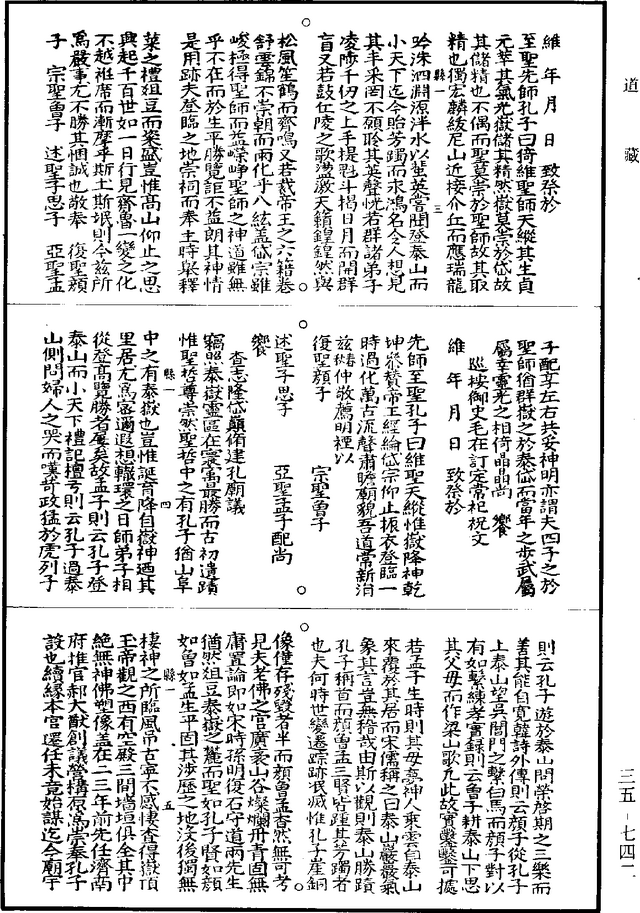 道藏
維　年　月　日　致祭於
至聖先師孔子曰倚維聖師天縱其生貞
元莘其氣光嶽儲其精然嶽莫宗於岱故
其儲精也不偶而聖莫崇於聖師故其取
縣一　三
精也獨宏麟紱尼山近接介丘而應瑞龍
吟洙泗淵源泮水以英當聞登泰山而
小天下迄今貽芳躅而永鴻名令人想見
其丰采罔不願聆其英聲恍若群諸弟子
凌陟千仞之上手提魁斗揭日月而開群
盲又若鼓仁陵之歌激天籟鍠鍠然與
松風笙鶴而齊鳴又若裁帝王之六籍卷
舒雲錦不崇朝而雨化乎八紘蓋岱宗雖
峻極得聖師而益嶸崢聖師之神道雖無
乎不在而於生平勝覽詎不益朗其神情
是用跡夫登臨之地崇祠而奉主時舉釋
菜之禮俎豆而粢盛豈惟高山仰止之思
興起千百世如一日行見齊魯一變之化
不越袵席而漸摩乎斯土斯氓則今茲所
為嚴事尤不勝其悃誠也敬奉　復聖顏
子　宗聖曾子　述聖子思子　亞聖孟
子配享左右共妥神明亦謂夫四子之於
聖師猶群嶽之於泰岱而當年之步武屬
屬幸靈光之相倚晶晶尚　饗
巡按御史毛在訂定常祀祝文
維　年　月　日　致祭於
先師至聖孔子曰維聖天縱惟嶽降神乾
坤參贊帝王經綸岱宗仰止振衣登臨一
時過化萬古流聲肅瞻廟貌吾道常新治
茲仲敬薦明禋以
復聖顏子　宗聖曾子
述聖子思子　亞聖孟子配尚
饗
查志隆岱巔脩建孔廟議
竊照泰嶽靈區在寰寓最勝而古初遺蹟
惟聖哲尊崇然聖哲中之有孔子猶山阜
縣一　四
中之有泰嶽也豈惟誕育降自嶽神迺其
里居尤為密邇遐想轍環之日師弟子相
從登高覽勝者屢矣故孟子則云孔子登
泰山而小天下禮記檀弓則云孔子過泰
山側問婦人之哭而嘆苛政猛於虎列子
則云孔子遊於泰山問榮啓期之三樂而
善其能自寬韓詩外傳則云顏子從孔子
上泰山望吳閶門之繫白馬而顏子對以
有如繫練孝實錄則云曾子耕泰山下思
其父母而作梁山歌凡此故實鑿鑿可據
若孟子生時則其母夢神人乘雲自泰山
來覆於其居而宋儒稱之曰泰山巖巖氣
象其言豈無稽哉由斯以觀則泰山勝蹟
孔子稱首而顏曾孟三賢皆踵其芳躅者
也夫何時世變遷踪跡泯滅惟孔子崖銅
像僅存殘毀者半而顏曾孟杳然無可考
見夫老佛之宮廣蒙山谷燦爛丹青固無
庸置論即如宋時孫明復石守道兩先生
猶然俎豆泰嶽之麓而聖如孔子賢如顏
如曾如孟生平固其涉歷之地没後獨無
縣一　五
棲神之所臨風吊古寧不感悽查得嶽頂
玉帝觀之西有空殿三間墻垣俱全其中
絕無神佛塑像蓋在二三年前先任濟南
府推官郝大猷創議營構原為崇奉孔子
設也續緣本官遷任未竟始謀迄今廟宇
三五－七四二